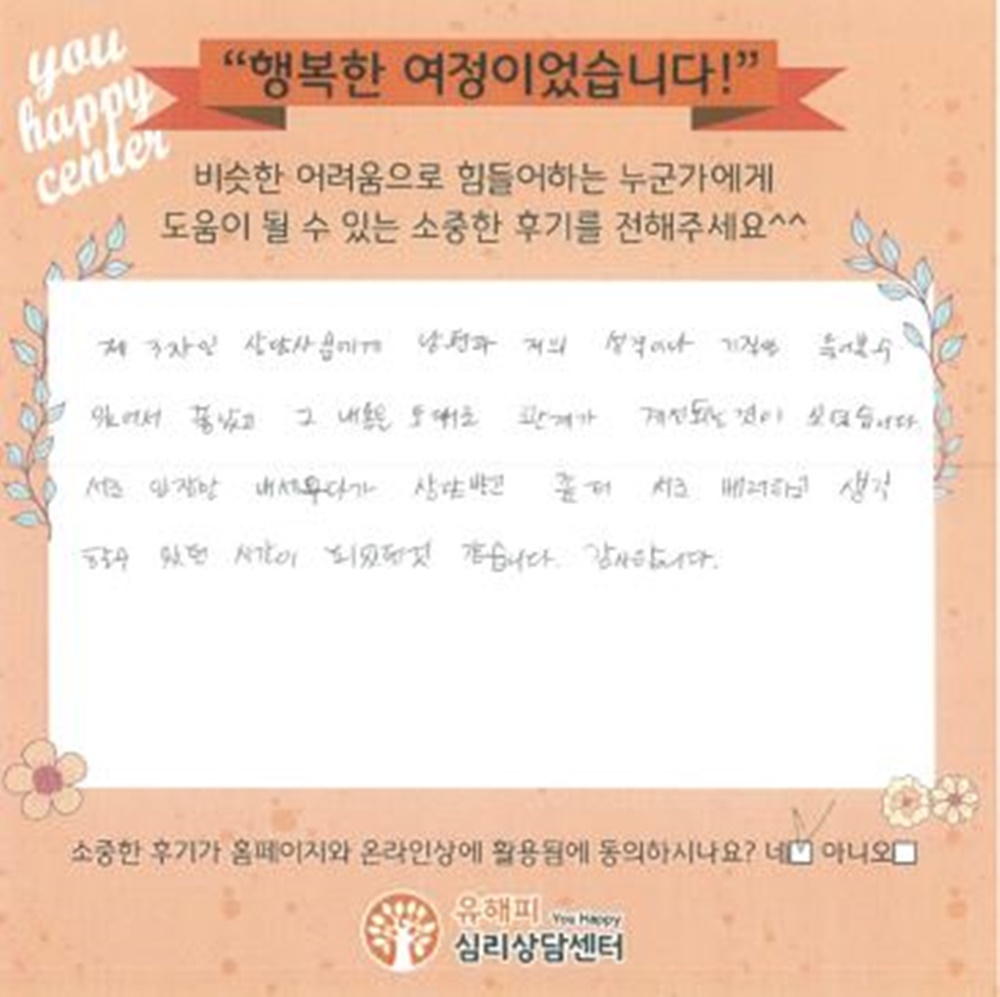 you
happy
center
“행복한 여정이었습니다!”
비슷한 어려움으로 힘들어하는 누군가에게
도움이 될 수 있는 소중한 후기를 전해주세요^^
제 3자인 상담사분에게 남편과 저의 성격이나 기질을 들어볼수
있어서 좋았고 그 내용을 토대로 관계가 개선되는 것이 보였습니다
서로 입장만 내세우다가 상담받고 좀 더 서로 배려하고 생각
할수 있던 시간이 되었던것 같습니다. 감사합니다.
소중한 후기가 홈페이지와 온라인상에 활용됨에 동의하시나요? 네 아니오
유해피 You Happy
심리상담센터